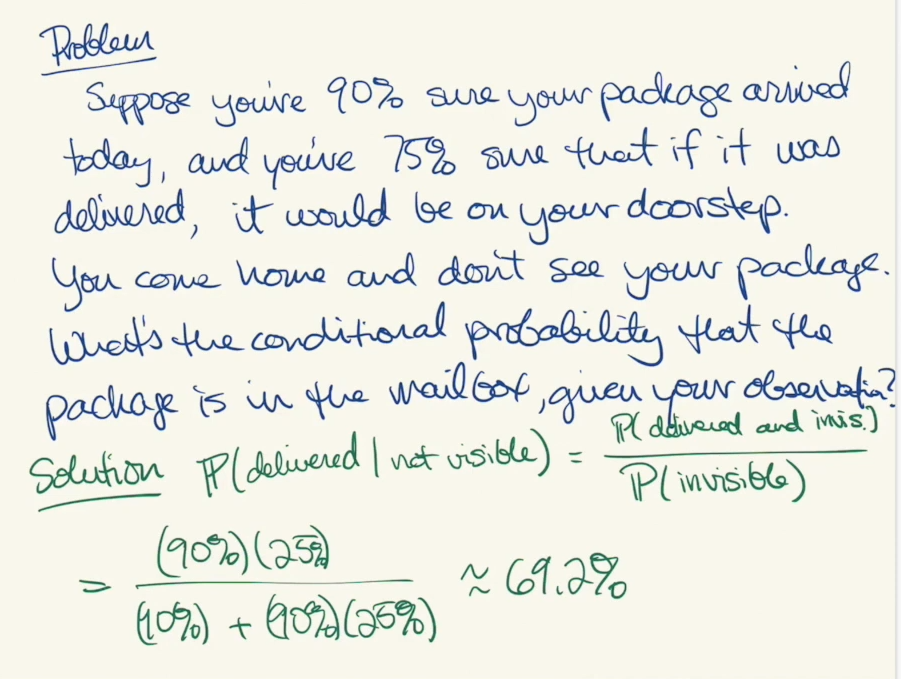 Problem
Suppose you're 90% sure your package arrived
today, and you're 75% sure that if it was
delivered, it would be on your doorstep.
You come home and don't see your package.
What's the conditional probability that the
package is in the mailbox, given your observation?
Solution ℙ(delivered | not visible) = ℙ(delivered and invis.) / ℙ(invisible)
= (90%)(25%) / (10%) + (90%)(25%) ≈ 69.2%